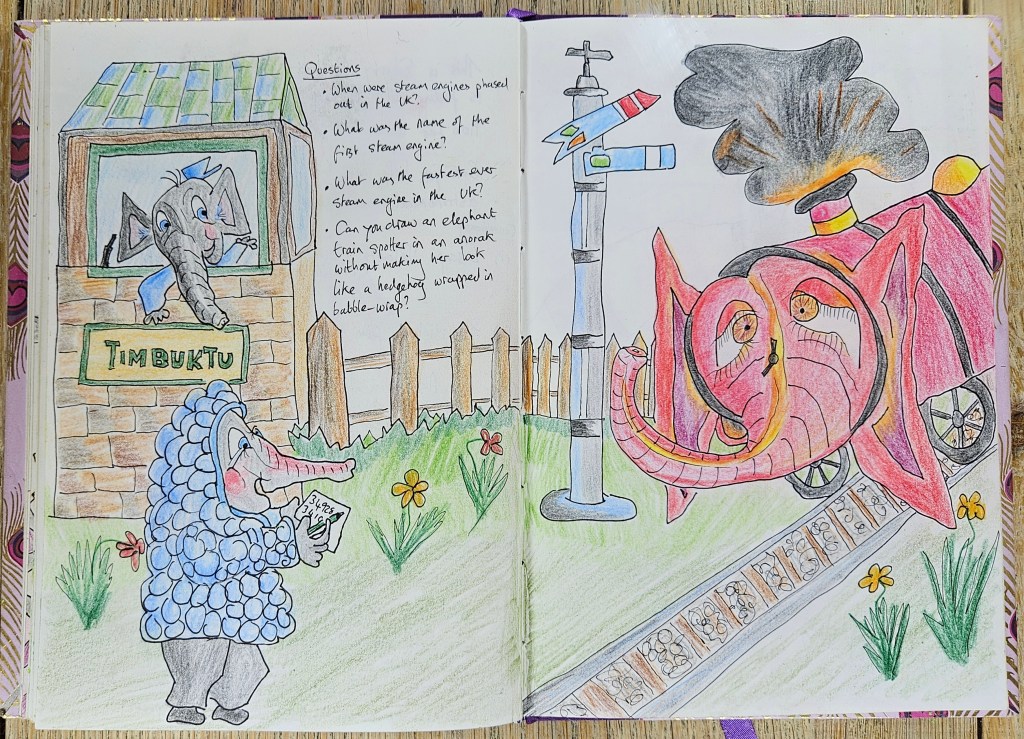 Questions
• When were steam engines phased
out in the UK?
• What was the name of the
first steam engine?
• What was the fastest ever
steam engine in the UK?
• Can you draw an elephant
train spotter in an anorak
without making her look
like a hedgehog wrapped in
bubble-wrap?
TIMBUKTU